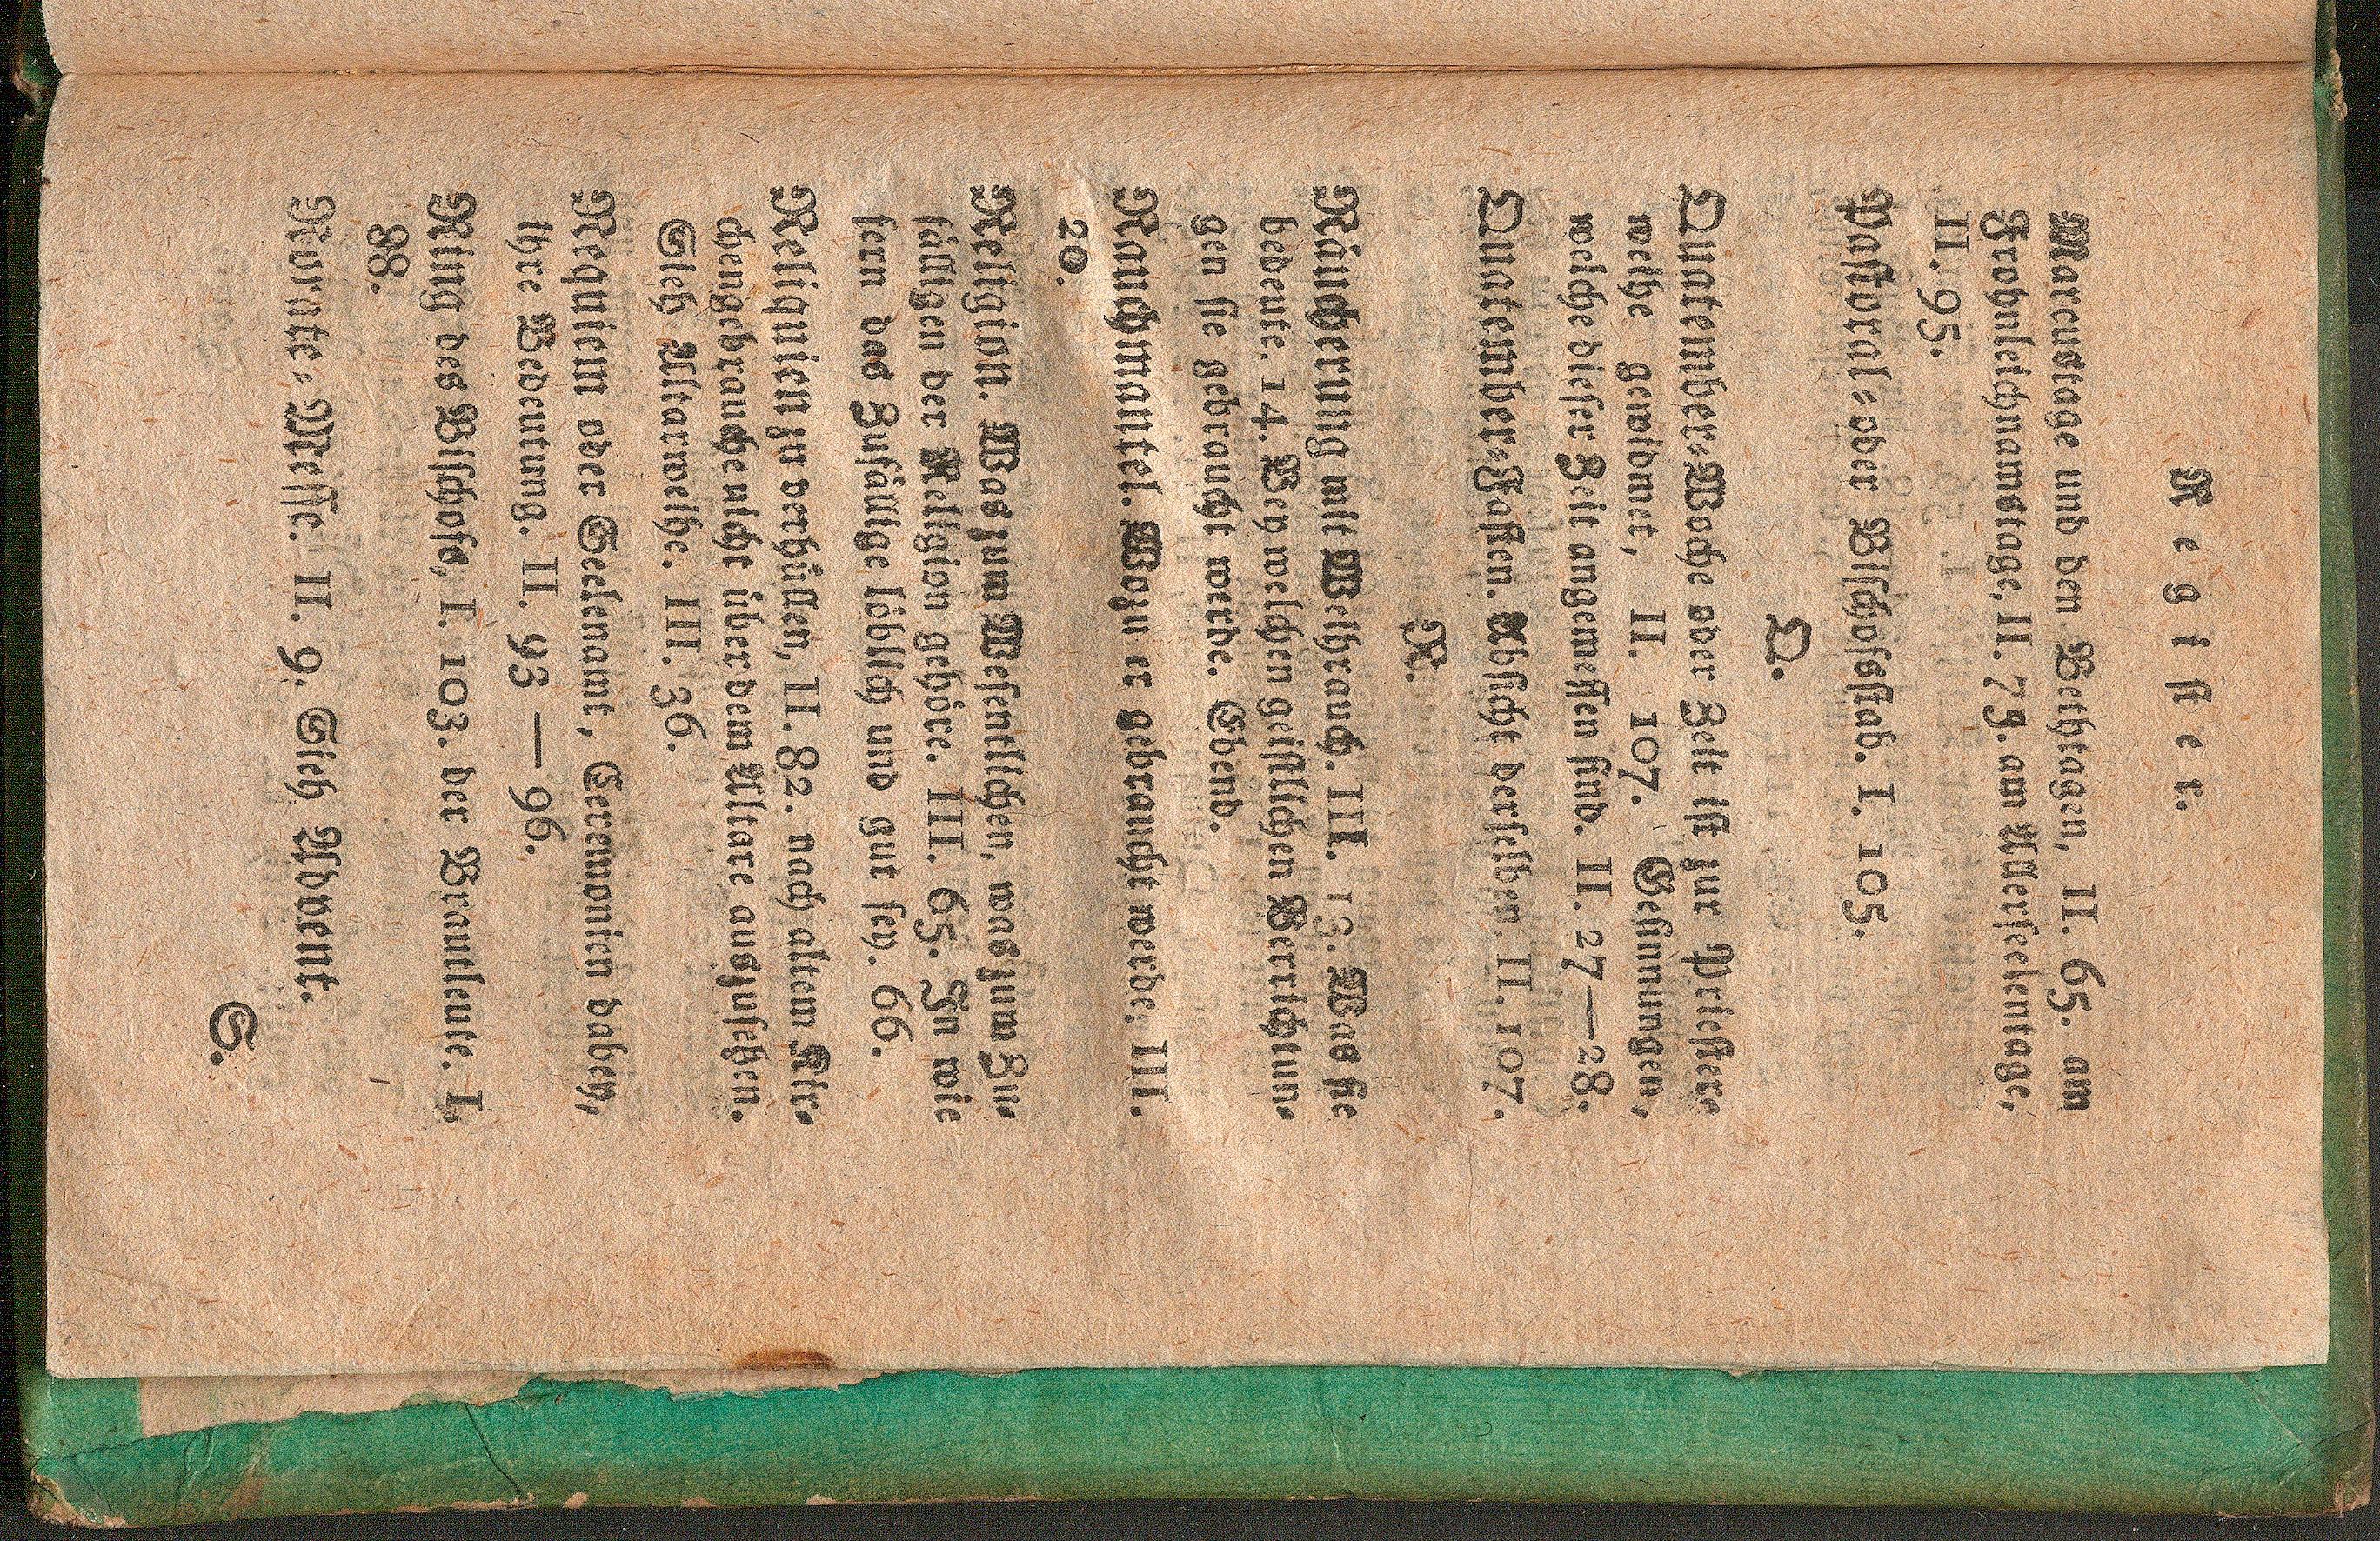 Register.
Marcustage und den Bethtagen, II. 65. am
Frohnleichnamstage, II. 79. am Allerseelentage,
II. 95.
Pastoral- oder Bischofsstab. I. 105.
Q.
Quatember-Woche oder Zeit ist zur Priester-
weihe gewidmet, II. 107. Gesinnungen,
welche dieser Zeit angemessen sind. II. 27—28.
Quatember-Fasten. Absicht derselben. II. 107.
R.
Räucherung mit Weihrauch. III. 13. Was sie
bedeute. 14. Bey welchen geistlichen Verrichtun-
gen sie gebraucht werde. Ebend.
Rauchmantel. Wozu er gebraucht werde. III.
20.
Religion. Was zum Wesentlichen, was zum Zu-
fälligen der Religion gehöre. III. 65. In wie
fern das Zufällige löblich und gut sey. 66.
Reliquien zu verhüllen, II. 82. nach altem Kir-
chengebrauche nicht über dem Altare auszusetzen.
Sieh Altarweihe. III. 36.
Requiem oder Seelenamt, Ceremonien dabey,
ihre Bedeutung. II. 93 — 96.
Ring des Bischofs, I. 103. der Brautleute. I.
88.
Rorate-Messe. II. 9. Sieh Advent.
S.